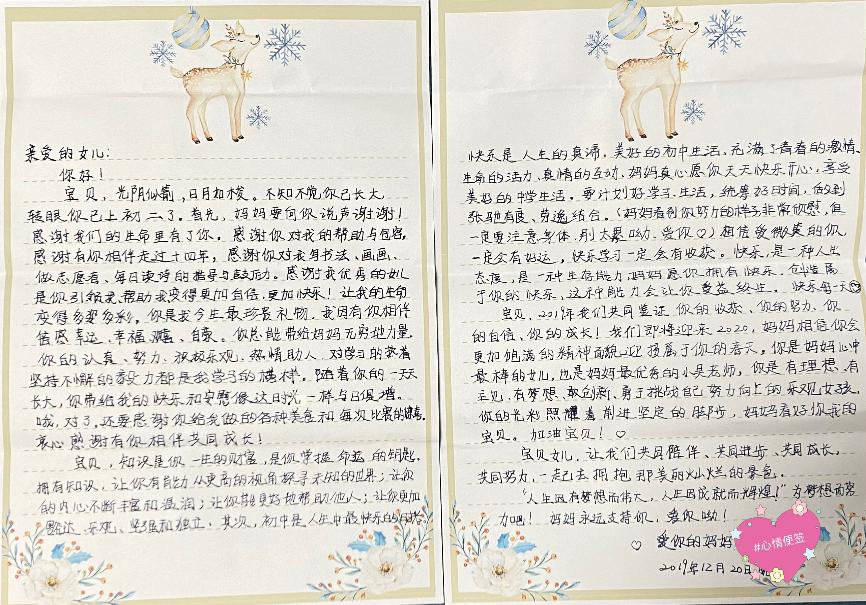 亲爱的女儿:
你好!
宝贝,光阴似箭,日月如梭。不知不觉你已长大,
转眼你已上初二了。首先,妈妈要向你说声谢谢!
感谢我们的生命里有了你。感谢你对我的帮助与包容,
感谢有你相伴走过十四年,感谢你对我身书法、画画、
做志愿者、每日读诗的指导与鼓励。感谢我优秀的女儿
是你引领我帮助我变得更加自信,更加快乐!让我的生命
变得多姿多彩。你是我今生最珍贵礼物,我因有你相伴
倍感幸运、幸福、自豪。你总能带给妈妈无穷地力量。
你的认真、努力、积极乐观、热情助人、对学习的执着
坚持不懈的毅力都是我学习的榜样。随着你的一天天
长大,你带给我的快乐和安慰像这时光一样与日俱增。
哦,对了,还要感谢你给我做的各种美食和每次比赛的惊喜。
衷心感谢有你相伴共同成长!
宝贝,知识是你一生的财富,是你掌握命运的钥匙。
拥有知识,让你有能力从更高的视角探寻未知的世界;让你
的内心不断丰富和滋润;让你能更好地帮助他人;让你更加
豁达、乐观、坚强和独立。其次,初中是人生中最快乐的时光
快乐是人生的真谛,美好的初中生活,充满了青春的激情、
生命的活力、真情的互动。妈妈真心愿你天天快乐开心,享受
美好的中学生活。要计划好学习、生活,统筹好时间,做到
张弛有度、劳逸结合。(妈妈看到你努力的样子非常欣慰,但
一定要注意身体,别太累呦,爱你♡)相信爱微笑的你,
一定会有好运,快乐学习一定会有收获。快乐,是一种人生
态度,是一种生存能力,妈妈愿你拥有快乐,创造属
于你的快乐,这种能力会让你受益终生。快乐每一天
宝贝,2019年我们共同鉴证你的收获、你的努力、你
的自信、你的成长!我们即将迎来2020,妈妈相信你会以
更加饱满的精神面貌迎接属于你的春天。你是妈妈心中
最棒的女儿,也是妈妈最优秀的小吴老师,你是有理想,有
主见,有梦想、敢创新、勇于挑战自己努力向上的乐观女孩,
你的光彩照耀着前进坚定的脚步,妈妈看好你我的
宝贝。加油宝贝!♡
宝贝女儿,让我们共同陪伴、共同进步、共同成长,
共同努力,一起去拥抱那美丽灿烂的景色。
“人生因有梦想而伟大,人生因成就而辉煌!”为梦想而努
力吧!妈妈永远支持你,爱你呦!
♡ 爱你的妈妈
2019年12月20日
#心情便签